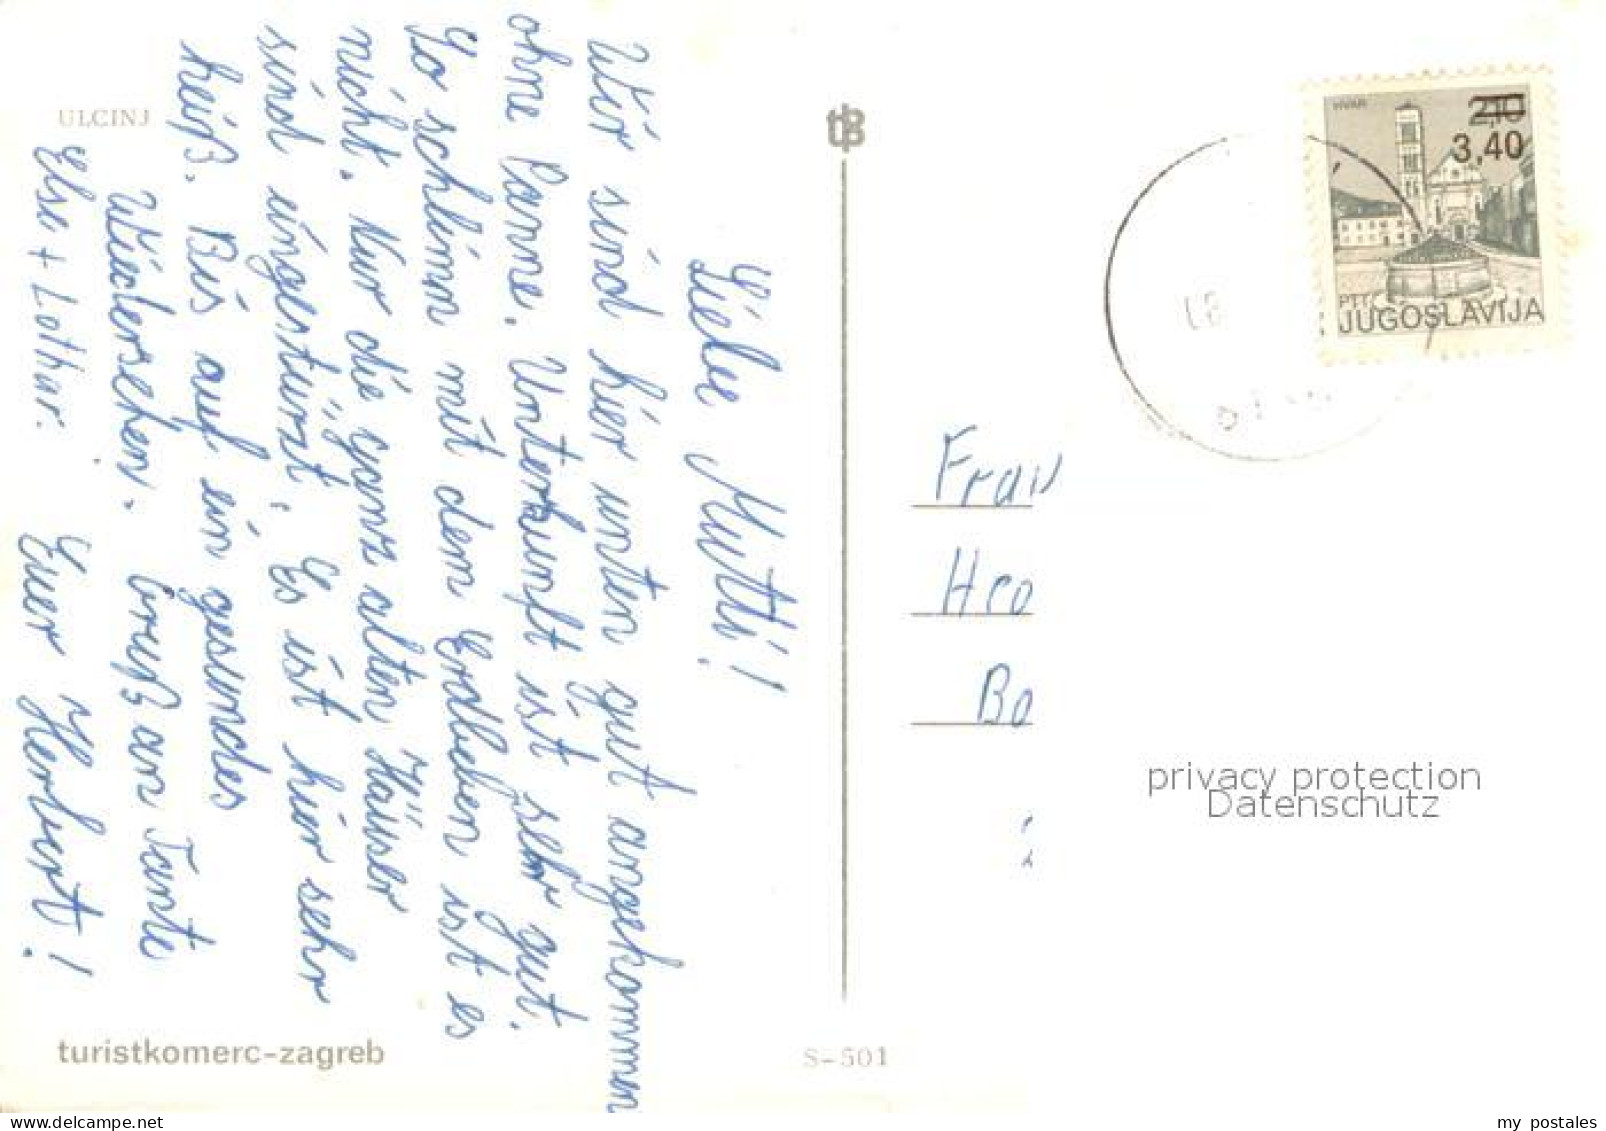 ULCINJ
Liebe Mutti!
Wir sind hier unten gut angekommen
ohne Panne. Unterkunft ist sehr gut.
So schlimm mit dem Erdbeben ist es
nicht. Nur die ganz alten Häuser
sind eingestürzt. Es ist hier sehr
heiß. Bis auf ein gesundes
Wiedersehen. Gruß an Tante
Else + Lothar. Euer Herbert!
turistkomerc-zagreb
S-501
HVAR
2,10
3,40
PTT
JUGOSLAVIJA
Frau
Hro
Bo
privacy protection
Datenschutz
my postales